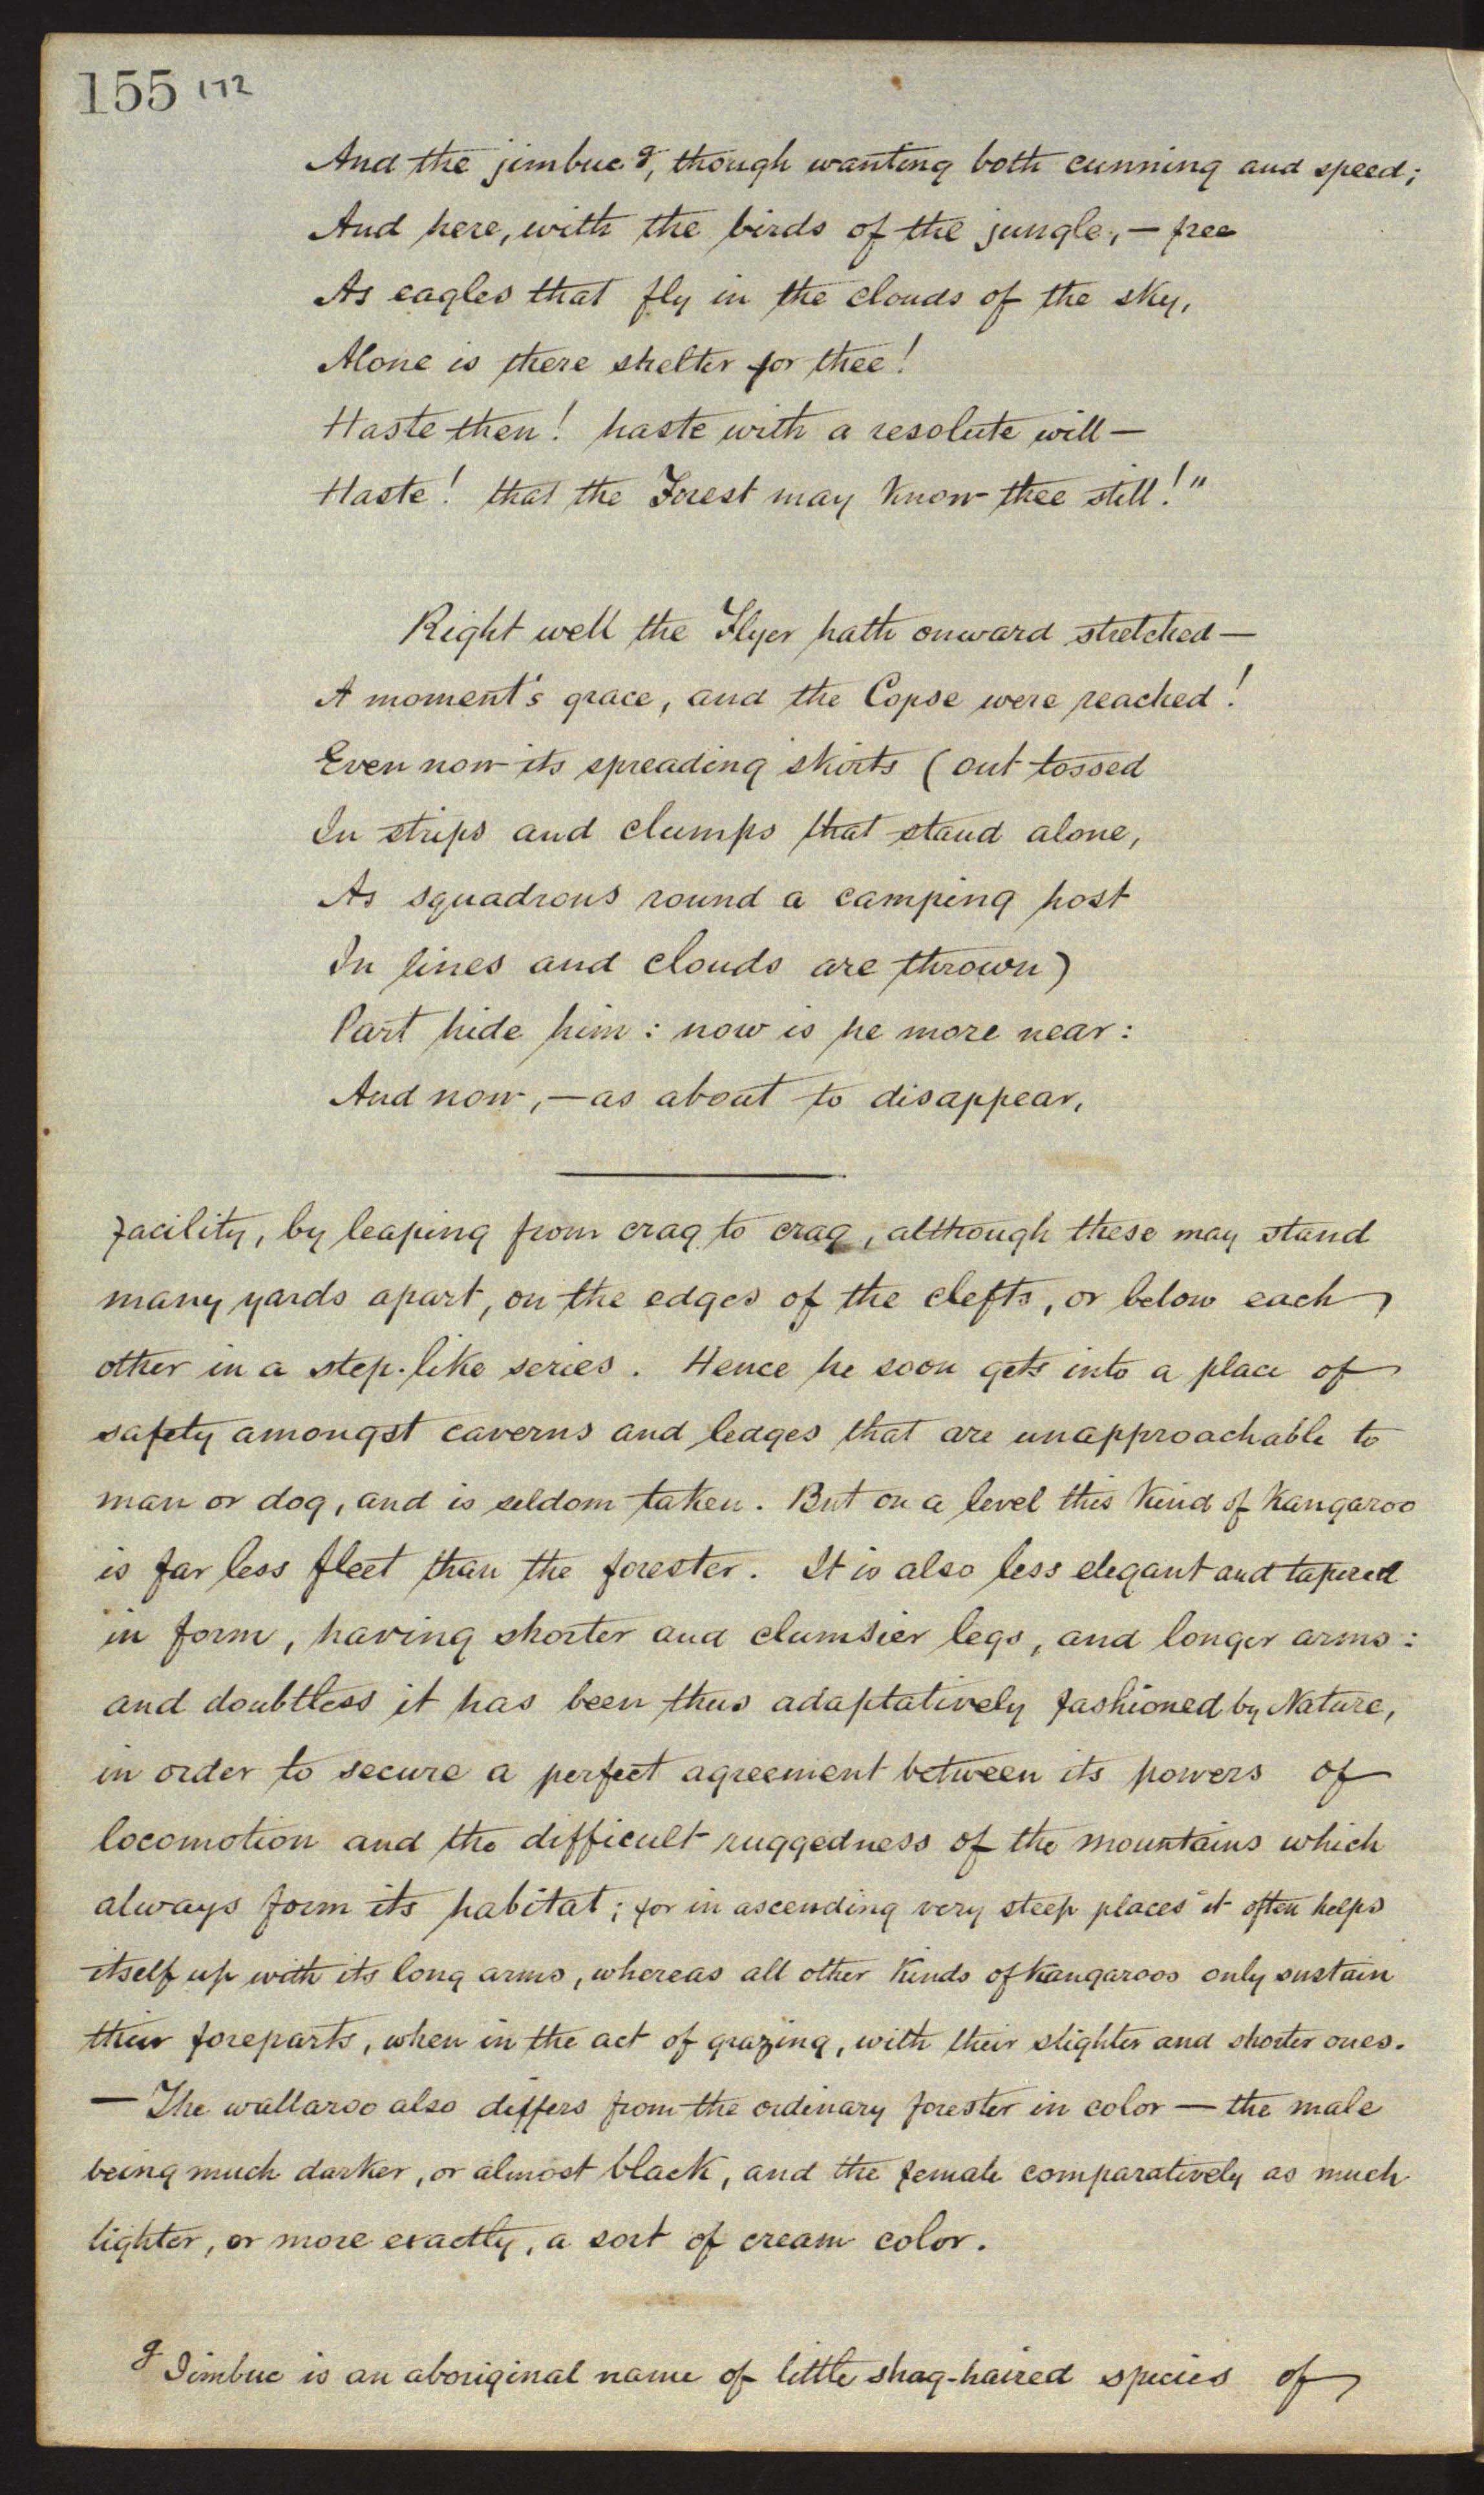 155 172
And the jimbuc g, though wanting both cunning and speed;
And here, with the birds of the jungle, — free
As eagles that fly in the clouds of the sky,
Alone is there shelter for thee!
Haste then! haste with a resolute will —
Haste! that the Forest may know thee still!"
Right well the Flyer hath onward stretched —
A moment's grace, and the Copse were reached!
Even now its spreading skirts (out tossed
In strips and clumps that stand alone,
As squadrons round a camping host
In lines and clouds are thrown)
Part hide him: now is he more near:
And now, — as about to disappear,
facility, by leaping from crag to crag, although these may stand
many yards apart, on the edges of the clefts, or below each
other in a step-like series. Hence he soon gets into a place of
safety amongst caverns and ledges that are unapproachable to
man or dog, and is seldom taken. But on a level this kind of Kangaroo
is far less fleet than the forester. It is also less elegant and tapered
in form, having shorter and clumsier legs, and longer arms:
and doubtless it has been thus adaptatively fashioned by Nature,
in order to secure a perfect agreement between its powers of
locomotion and the difficult ruggedness of the mountains which
always form its habitat; for in ascending very steep places it often helps
itself up with its long arms, whereas all other kinds of kangaroos only sustain
their foreparts, when in the act of grazing, with their slighter and shorter ones.
— The wallaroo also differs from the ordinary forester in color — the male
being much darker, or almost black, and the female comparatively as much
lighter, or more exactly, a sort of cream color.
g Jimbuc is an aboriginal name of little shag-haired species of